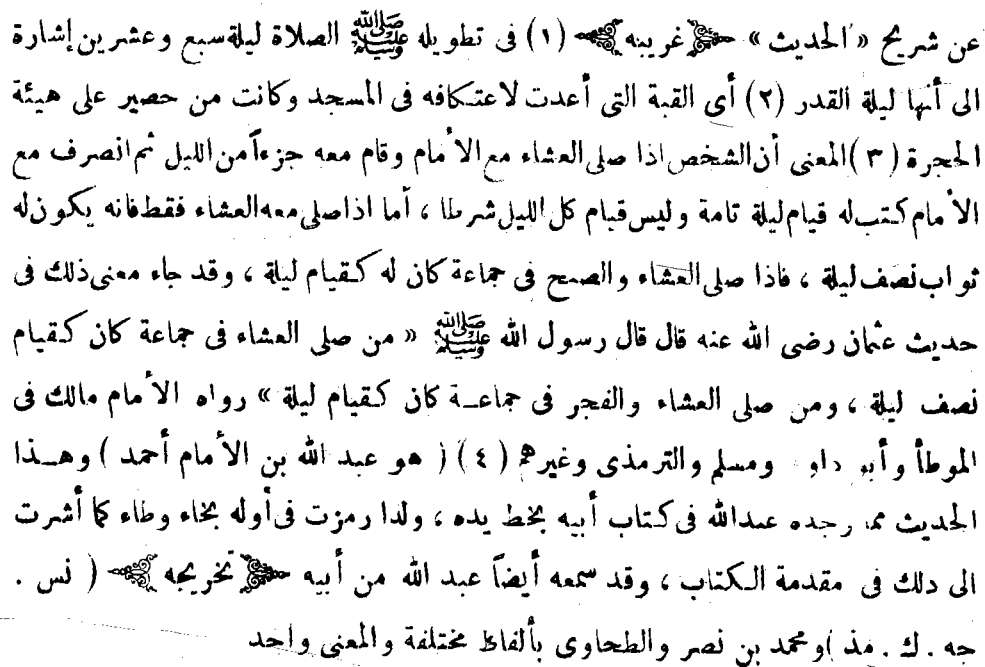 عن شريح « الحديث » غريبه (١) فى تطويله ﷺ الصلاة ليلة سبع وعشرين إشارة
الى أنها ليلة القدر (٢) أى القبة التى أعدت لاعتكافه فى المسجد وكانت من حصير على هيئة
الحجرة (٣) المعنى أن الشخص اذا صلى العشاء مع الأمام وقام معه جزءاً من الليل ثم انصرف مع
الأمام كتب له قيام ليلة تامة وليس قيام كل الليل شرطا ، أما اذا صلى معه العشاء فقط فانه يكون له
ثواب نصف ليلة ، فاذا صلى العشاء والصبح فى جماعة كان له كقيام ليلة ، وقد جاء معنى ذلك فى
حديث عثمان رضى الله عنه قال قال رسول الله ﷺ « من صلى العشاء فى جماعة كان كقيام
نصف ليلة ، ومن صلى العشاء والفجر فى جماعة كان كقيام ليلة » رواه الأمام مالك فى
الموطأ وأبو داود ومسلم والترمذى وغيرهم (٤) ( هو عبد الله بن الأمام أحمد ) وهذا
الحديث مما وجده عبدالله فى كتاب أبيه بخط يده ، ولذا رمزت فى أوله بخاء وطاء كما أشرت
الى ذلك فى مقدمة الكتاب ، وقد سمعه أيضاً عبد الله من أبيه تخريجه ( نس .
جه . ك . مذ ) ومحمد بن نصر والطحاوى بألفاظ مختلفة والمعنى واحد